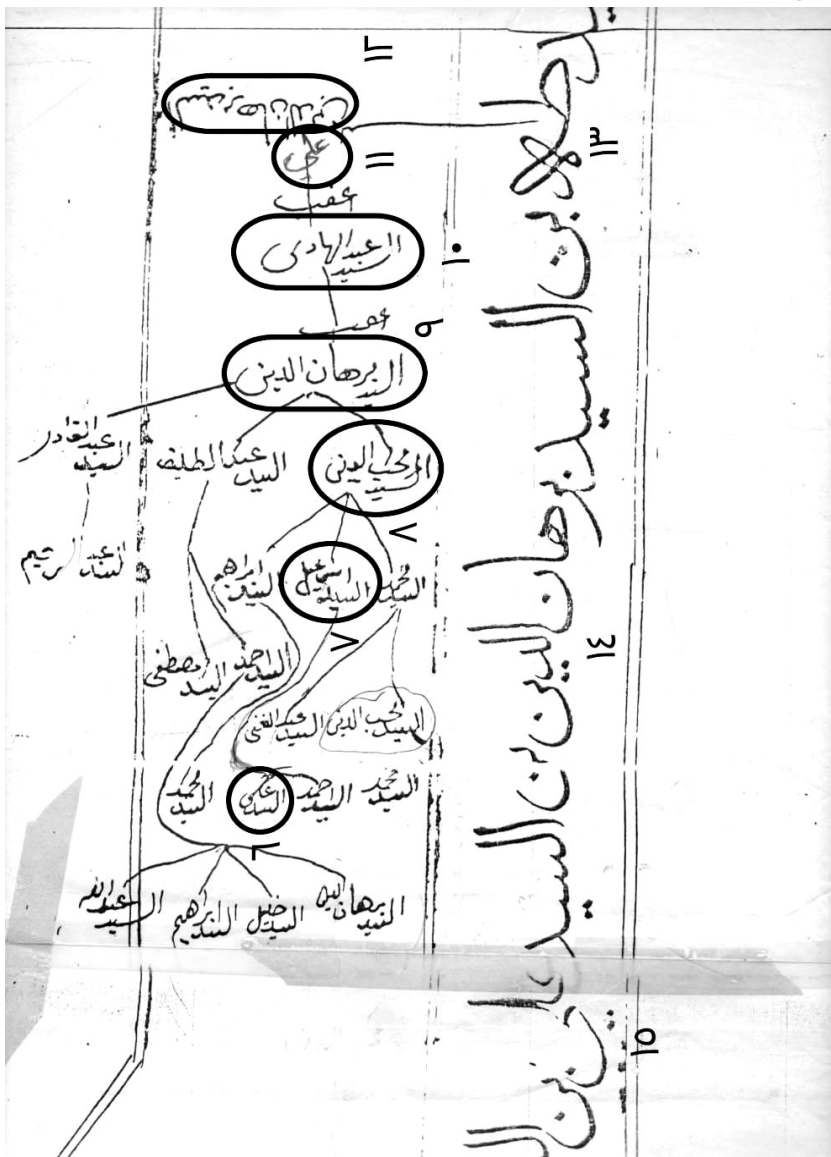 ١٢
السيد برهان الدين
علي
١١
اعقب
السيد عبد الهادى
١٠
اعقب
٩
السيد برهان الدين
السيد عبد القادر
السيد عبد اللطيف
السيد محب الدين
٨
السيد عبد الرحيم
السيد ابراهيم
السيد اسمعيل
السيد محمد
٧
السيد مصطفى
السيد احمد
السيد عبد الغنى
السيد محب الدين
السيد محمد
السيد علي
السيد احمد
السيد محمد
٦
السيد عبد الله
السيد ابراهيم
السيد خليل
السيد برهان الدين
١٣
بن السيد برهان الدين بن السيد
١٤
١٥
بن